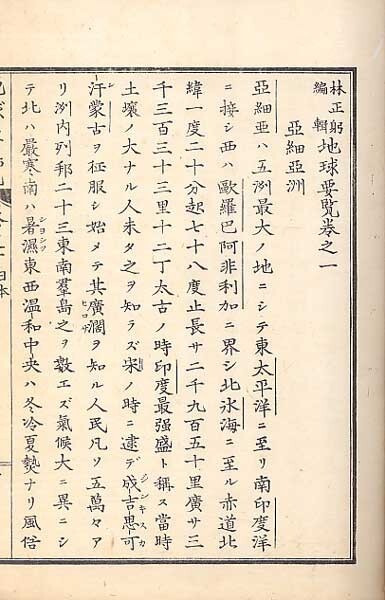 林正躬編輯 地球要覽卷之一
亞細亞洲
亞細亜ハ五洲最大ノ地ニシテ東太平洋ニ至リ南印度洋
ニ接シ西ハ歐羅巴阿非利加ニ界シ北氷海ニ至ル赤道北
緯一度二十分起七十八度止長サ二千九百五十里廣サ三
千三百三十三里十二丁太古ノ時印度最强盛ト稱ス當時
土壤ノ大ナル人未タ之ヲ知ラズ宋ノ時ニ逮デ成吉思可
汗蒙古ヲ征服シ始メテ其廣濶ヲ知ル人民凡ソ五萬々ア
リ洲内列邦二十三東南羣島之ヲ數エズ氣候大ニ異ニシ
テ北ハ嚴寒南ハ暑濕東西温和中央ハ冬冷夏熱ナリ風俗